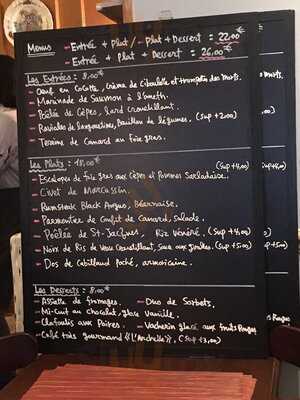 Menus - Entrée + Plat / - Plat + Dessert = 22,00€
- Entrée + Plat + Dessert = 26,00€
Les Entrées : 8,00€
- Oeuf en Cocotte, Crème de Ciboulette et trompettes des morts.
- Marinade de Saumon à l'aneth.
- Poêlée de Cèpes, lard croustillant.
- Ravioles de langoustines, bouillon de légumes. (Sup + 2,00)
- Terrine de Canard au foie gras.
Les Plats : 18,00€
- Escalopes de foie gras aux Cèpes et Pommes Sarladaise. (Sup +4,00)
- Civet de Marcassin.
- Rumsteak Black Angus, Béarnaise.
- Parmentier de Confit de Canard, salade.
- Poêlée de St-Jacques, Riz Vénéré. (Sup +4,00)
- Noix de Ris de Veau Croustillant, Sauce aux girolles. (Sup +5,00)
- Dos de Cabillaud Poché, armoricaine.
Les Desserts : 8,00€
- Assiette de fromages. - Duo de Sorbets.
- Mi-Cuit au chocolat, glace Vanille.
- Clafoutis aux Poires. - Vacherin glacé aux fruits Rouges
- Café très gourmand "L'Ardoise". (Sup +3,00)